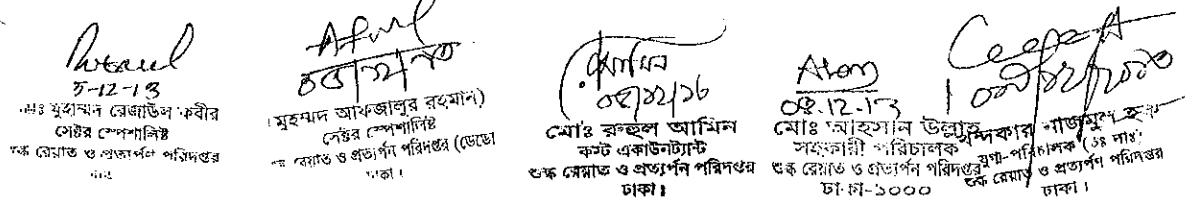 5-12-13
মোঃ মুহাম্মদ রেজাউল কবীর
সেক্টর স্পেশালিষ্ট
শুল্ক রেয়াত ও প্রত্যর্পন পরিদপ্তর
মুহম্মদ আফজালুর রহমান)
সেক্টর স্পেশালিষ্ট
রেয়াত ও প্রত্যর্পন পরিদপ্তর (ডেডো
ঢাকা।
মোঃ রুহুল আমিন
কস্ট একাউনট্যান্ট
শুল্ক রেয়াত ও প্রত্যর্পন পরিদপ্তর
ঢাকা।
08.12-13
মোঃ আহসান উল্লাহ
সহকারী পরিচালক
শুল্ক রেয়াত ও প্রত্যর্পন পরিদপ্তর
ঢাকা-১০০০
খন্দকার নাজমুল হক
যুগ্ম-পরিচালক (ভঃ দাঃ)
শুল্ক রেয়াত ও প্রত্যর্পন পরিদপ্তর
ঢাকা।